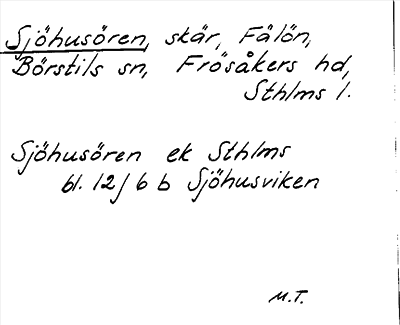 Sjöhusören, skär, Fälön,
Börstils sn, Frösåkers hd,
Sthlms l.
Sjöhusören ek Sthlms
bl. 12/6 b Sjöhusviken
M.T.